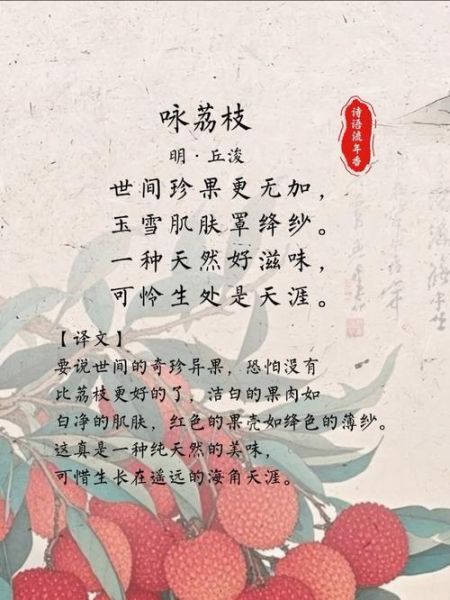 咏荔枝
明·丘浚
世间珍果更无加，
玉雪肌肤罩绛纱。
一种天然好滋味，
可怜生处是天涯。
【译文】
要说世间的奇珍异果，恐怕没有
比荔枝更好的了，洁白的果肉如
白净的肌肤，红色的果壳如绛色的薄纱。
这真是一种纯天然的美味，
可惜生长在遥远的海角天涯。
诗语流年香